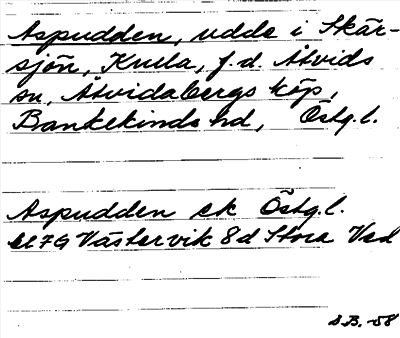 Aspudden, udde i Skär-
sjön, Kulla, f.d. Åtvids
sn, Åtvidabergs köp,
Bankekinds hd, Östg.l.
Aspudden ek Östg.l.
Västervik 8d Stora Ved
S.B. -58